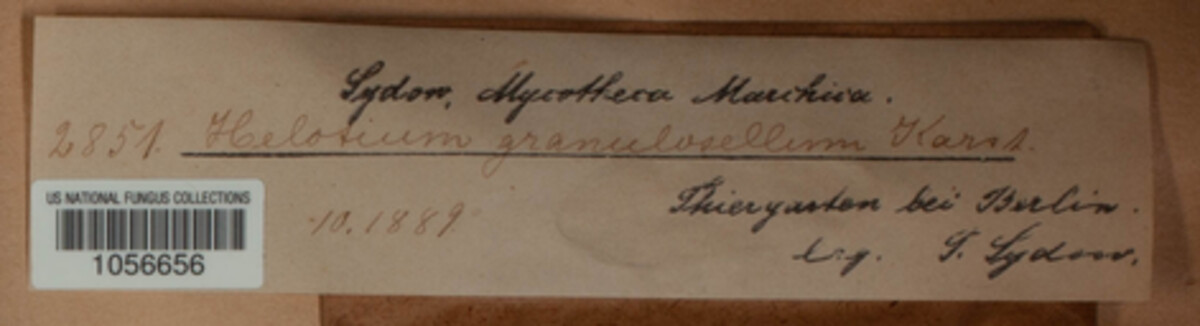 Sydow, Mycotheca Marchica.
2851. Helotium granulosellum Karst.
Thiergarten bei Berlin.
10.1889
leg. P. Sydow.
US NATIONAL FUNGUS COLLECTIONS
1056656